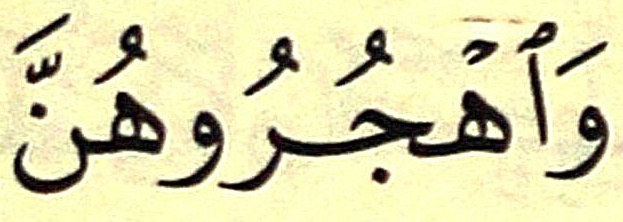 وَٱهۡجُرُوهُنَّ